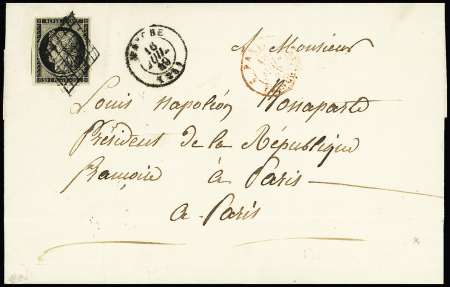 REPUB
A Monsieur
16
JUIL.
49
Louis Napoléon Bonaparte
Président de la République
française à Paris
a Paris